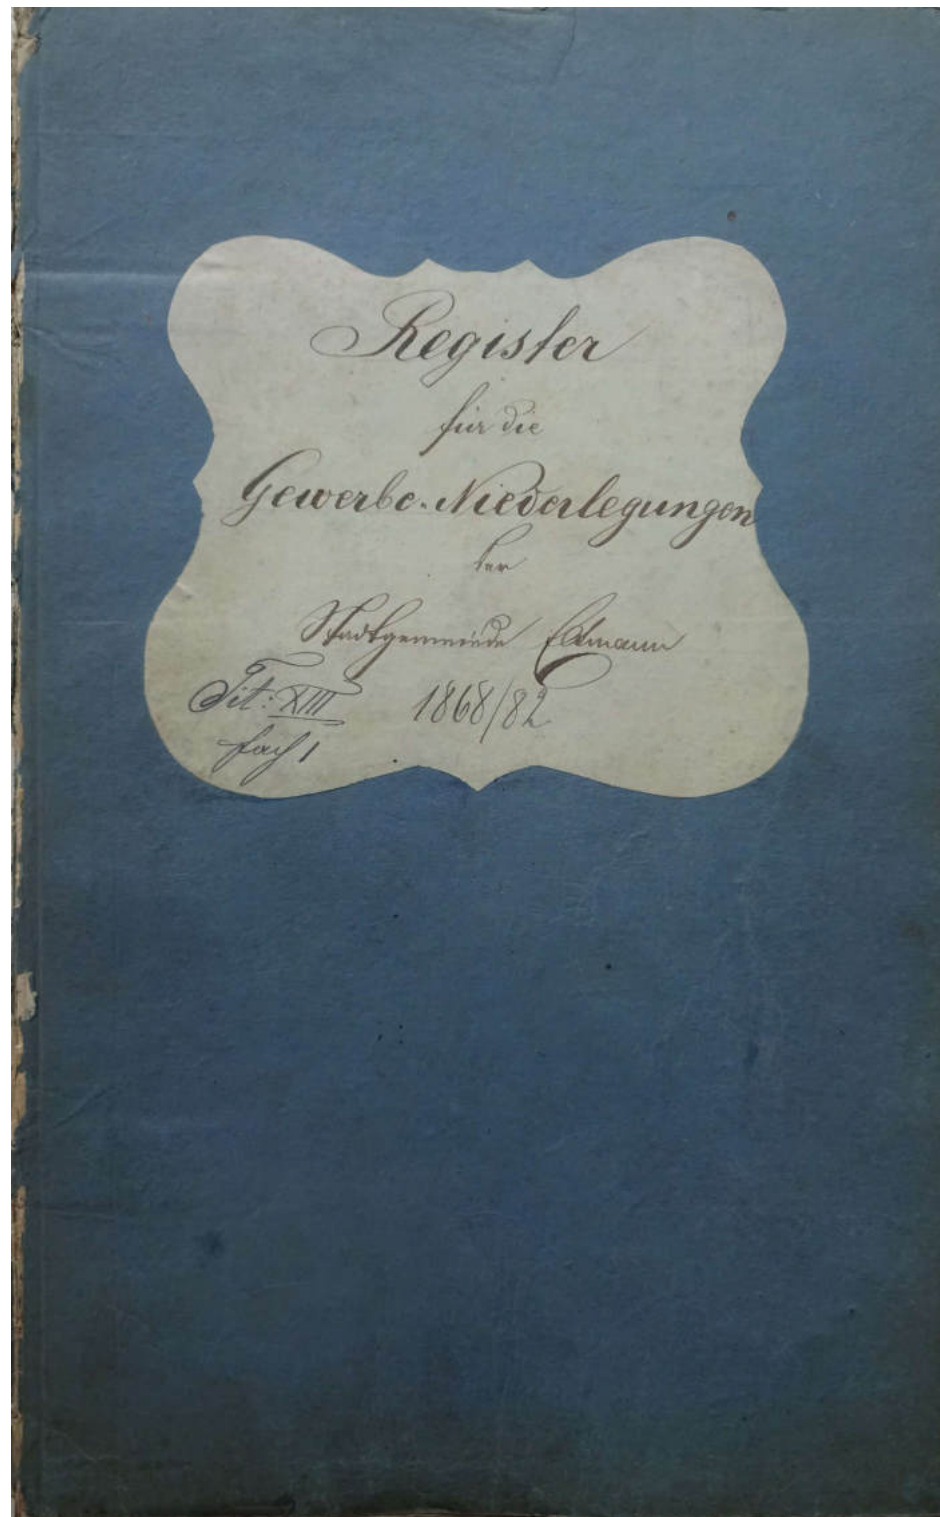 Register
für die
Gewerbe-Niederlegungen
der
Stadtgemeinde Eltmann
Tit: XIII 1868/82
Fach 1